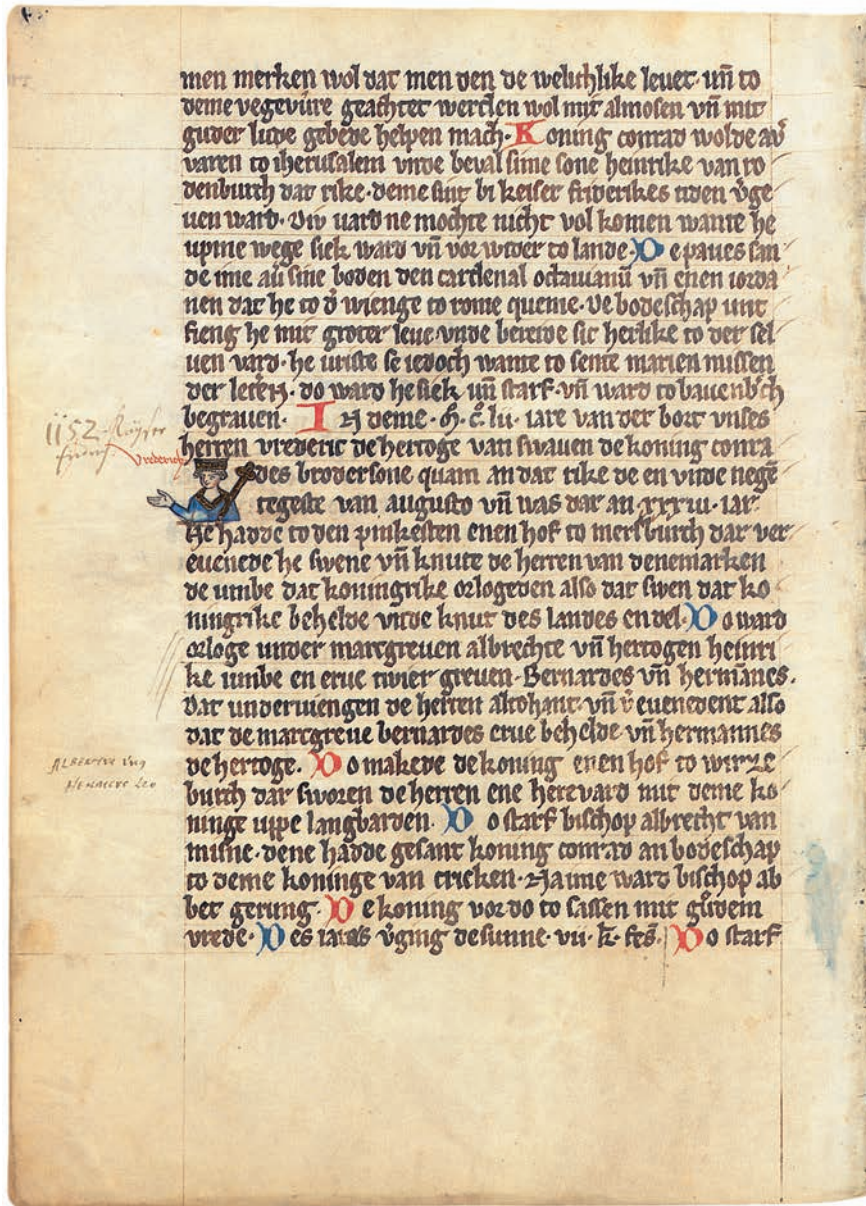 men merken wol dat men den de welichlike leuet· vn̄ to
deme vegevůre geachtet werden wol mit almosen vn̄ mit
guder lude gebede helpen mach· Koning conrad wolde au̾
varen to iherusalem vnde beval sime sone heinrike van ro
denburch dat rike· deme sint bi keiser friderikes tiden v̾ge
uen ward· Div uard ne mochte nicht vol komen wante he
upme wege siek ward vn̄ vor wider to lande· De paues san
de ime au̾ sine boden den cardenal octauianū vn̄ enen iorda
nen dat he to d̾ wienge to rome queme· De bodeschap unt
fieng he mit groter leue vnde bereide sic herlike to der sel
uen vard· he vriste se iedoch wante to sente marien missen
der leceren· do ward he siek vn̄ starf· vn̄ ward to bauenb̾ch
begrauen· IN deme· m̊· c̊· lii· iare van der bort vnses
herren vrederic de hertoge van swauen de koning conra
des broder sone quam an dat rike de en vnde negē
tegeste van augusto vn̄ was dar an· xxxiii· iar·
He hadde to den pinkesten enen hof to mersburch dar ver
euenede he swene vn̄ knute de herren van denemarken
de umbe dat koningrike orlogeden also dat swen dat ko
ningrike behelde vnde knut des landes en del· Do ward
orloge under marcgreuen albrechte vn̄ hertogen heinri
ke umbe en erue twier greuen· Bernardes vn̄ hermānes·
dat underviengen de herren altohant· vn̄ v̾euenedent also
dat de marcgreue bernardes erue behelde vn̄ hermannes
de hertoge· Do makede de koning enen hof to wirze
burch dar sworen de herren ene herevard mit deme ko
ninge uppe langbarden· Do starf bischop albrecht van
misne· dene hadde gesant koning conrad an bodeschap
to deme koninge van crieken· Na ime ward bischop ab
bet gerung· De koning vor do to sassen mit gůdem
vrede· Des iares v̾ging de sunne· vii· k̄· feb̄· Do starf
1152 Kayser
vrederich
ALBERTVS vnd
HENRICVS Leo